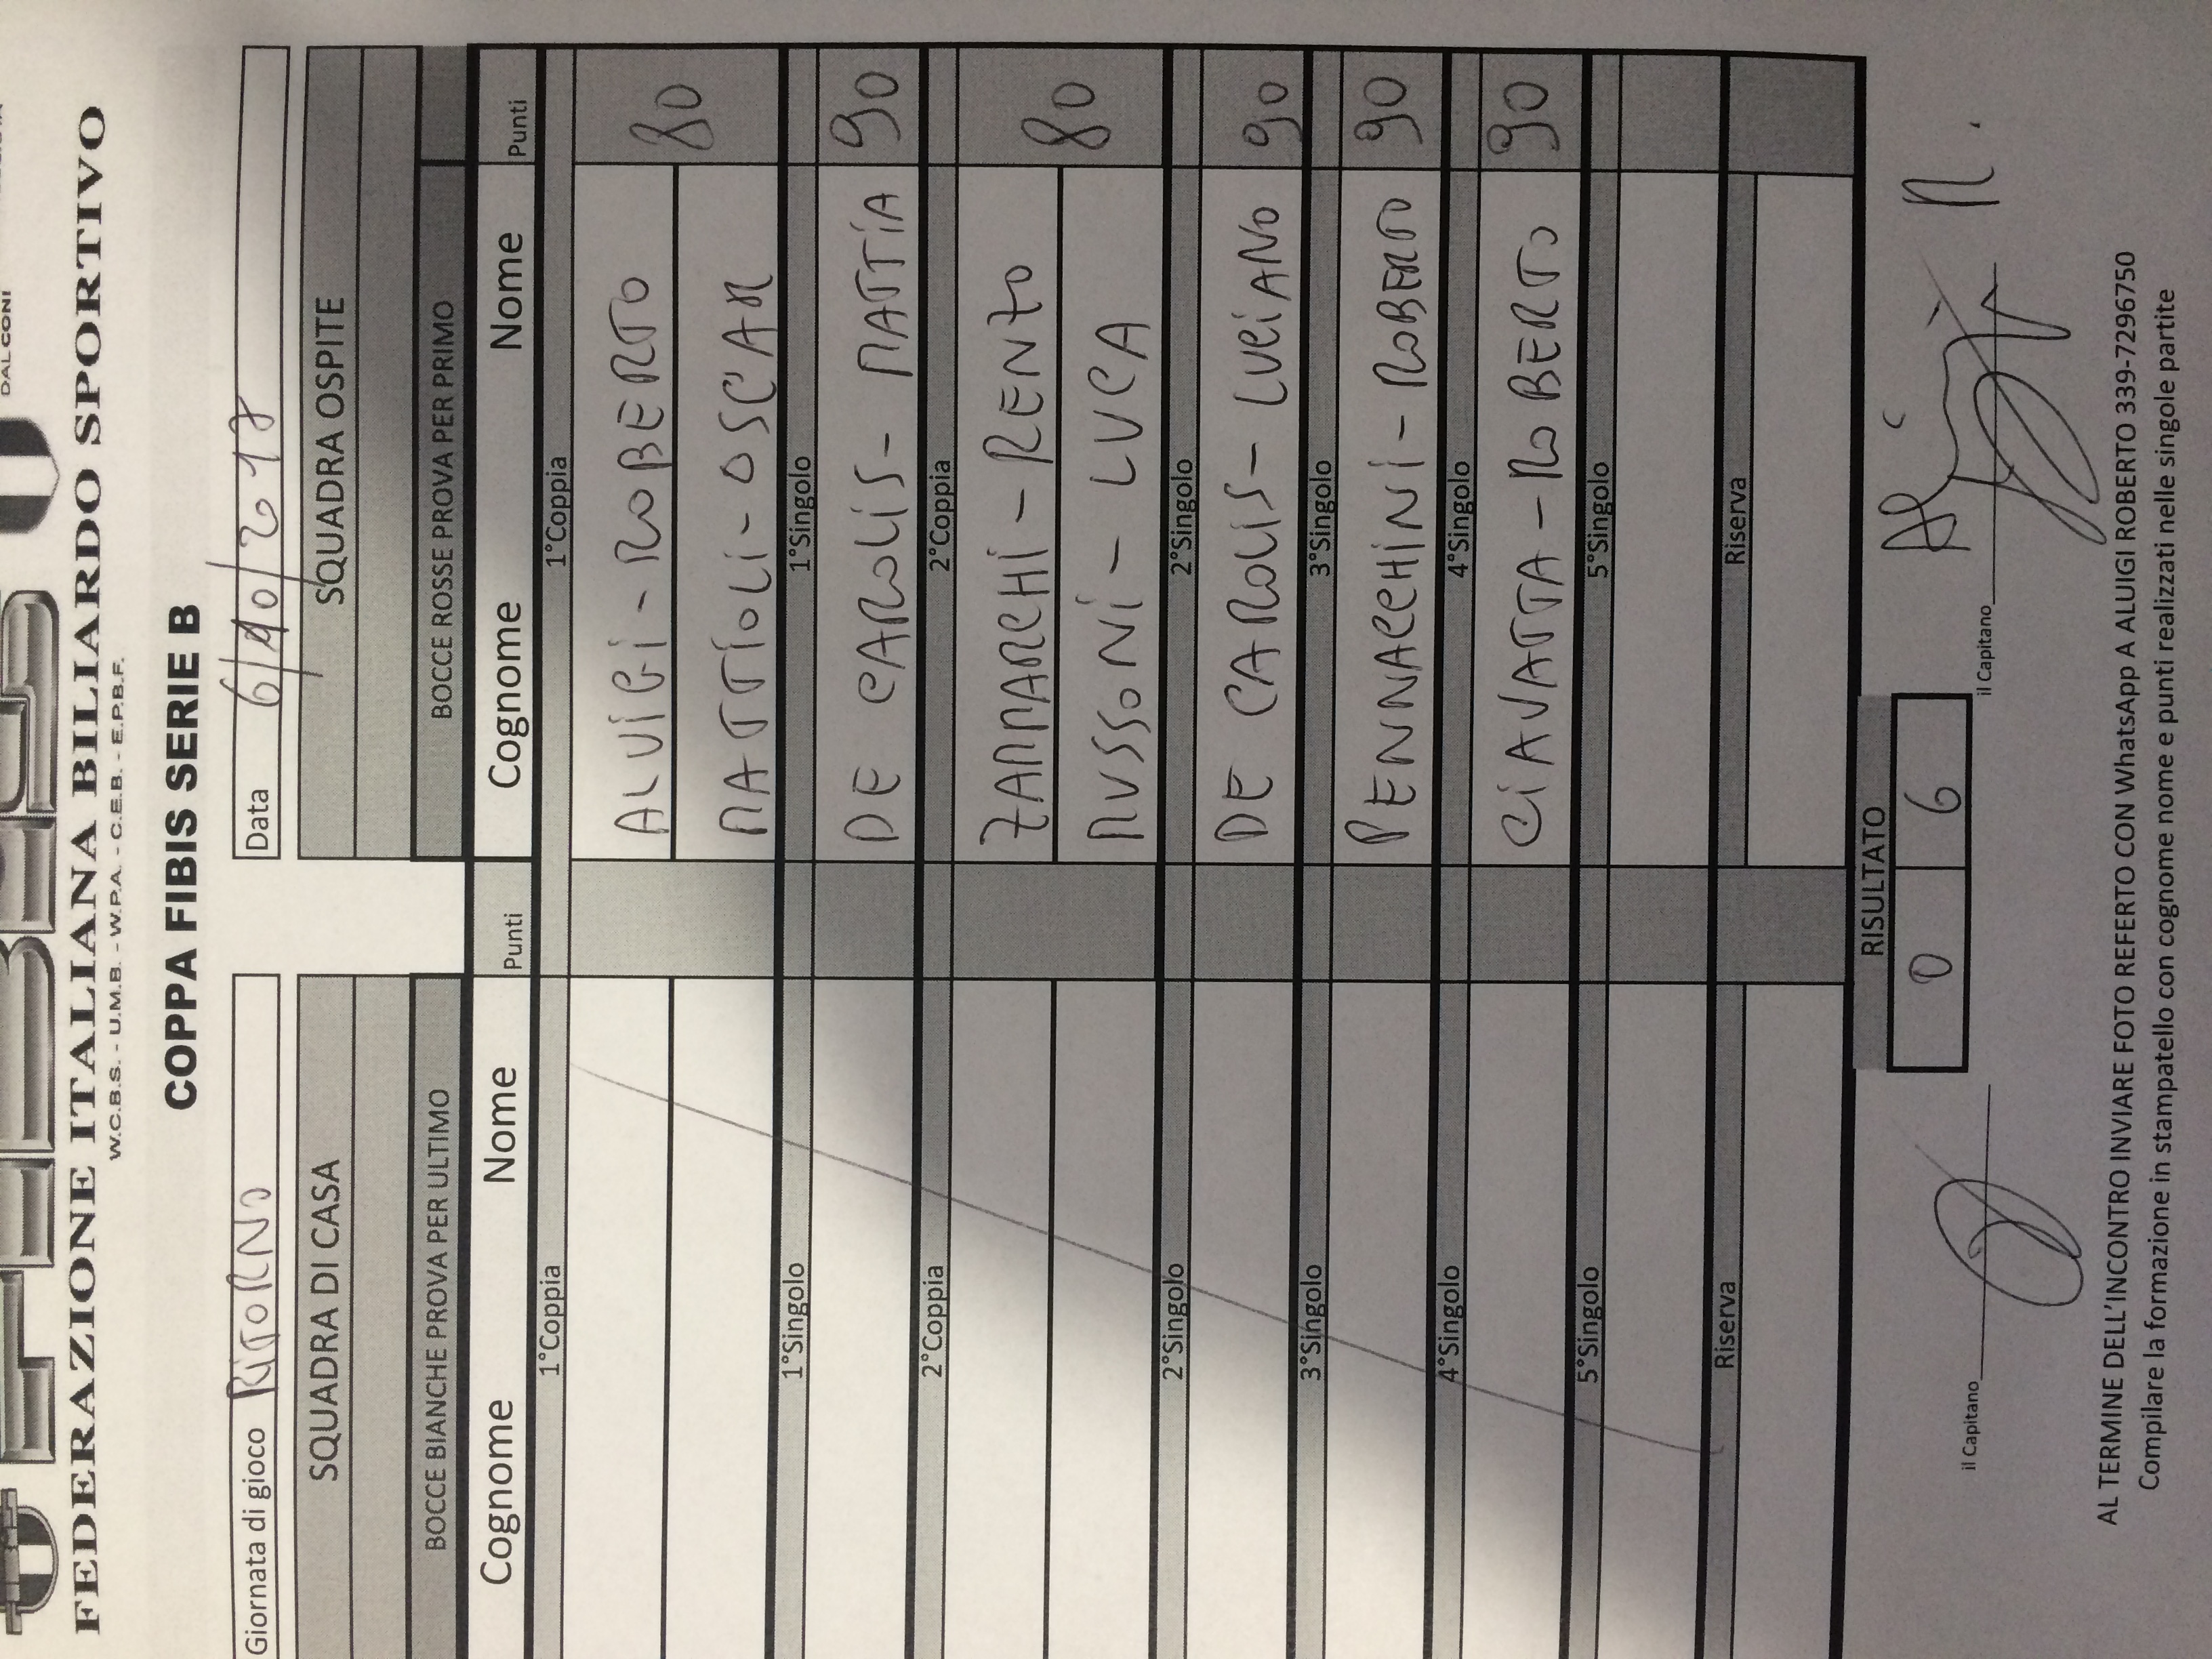 DAL CONI
FEDERAZIONE ITALIANA BILIARDO SPORTIVO
W.C.B.S. - U.M.B. - W.P.A. - C.E.B. - E.P.B.F.
COPPA FIBIS SERIE B
Giornata di gioco RITORNO
Data 6/10/2017
SQUADRA DI CASA SQUADRA OSPITE
BOCCE BIANCHE PROVA PER ULTIMO BOCCE ROSSE PROVA PER PRIMO
Cognome Nome Punti Cognome Nome Punti
1°Coppia 1°Coppia
ALUIGI - ROBERTO 80
MATTIOLI - OSCAR
1°Singolo 1°Singolo
DE CAROLIS - MATTIA 90
2°Coppia 2°Coppia
ZAMMARCHI - RENTO 80
MUSSONI - LUCA
2°Singolo 2°Singolo
DE CAROLIS - LUCIANO 90
3°Singolo 3°Singolo
PENNACCHINI - ROBERTO 90
4°Singolo 4°Singolo
CIAVATTA - ROBERTO 90
5°Singolo 5°Singolo
Riserva Riserva
RISULTATO
0 6
il Capitano il Capitano
AL TERMINE DELL'INCONTRO INVIARE FOTO REFERTO CON WhatsApp A ALUIGI ROBERTO 339-7296750
Compilare la formazione in stampatello con cognome nome e punti realizzati nelle singole partite